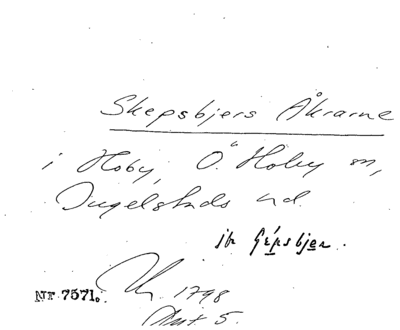 Skepsbjers Åkrarne
i Hoby, Ö. Hoby sn,
Ingelstads hd.
jfr Gépsbjer.
Nr 7571. 1798
Akt. 5.